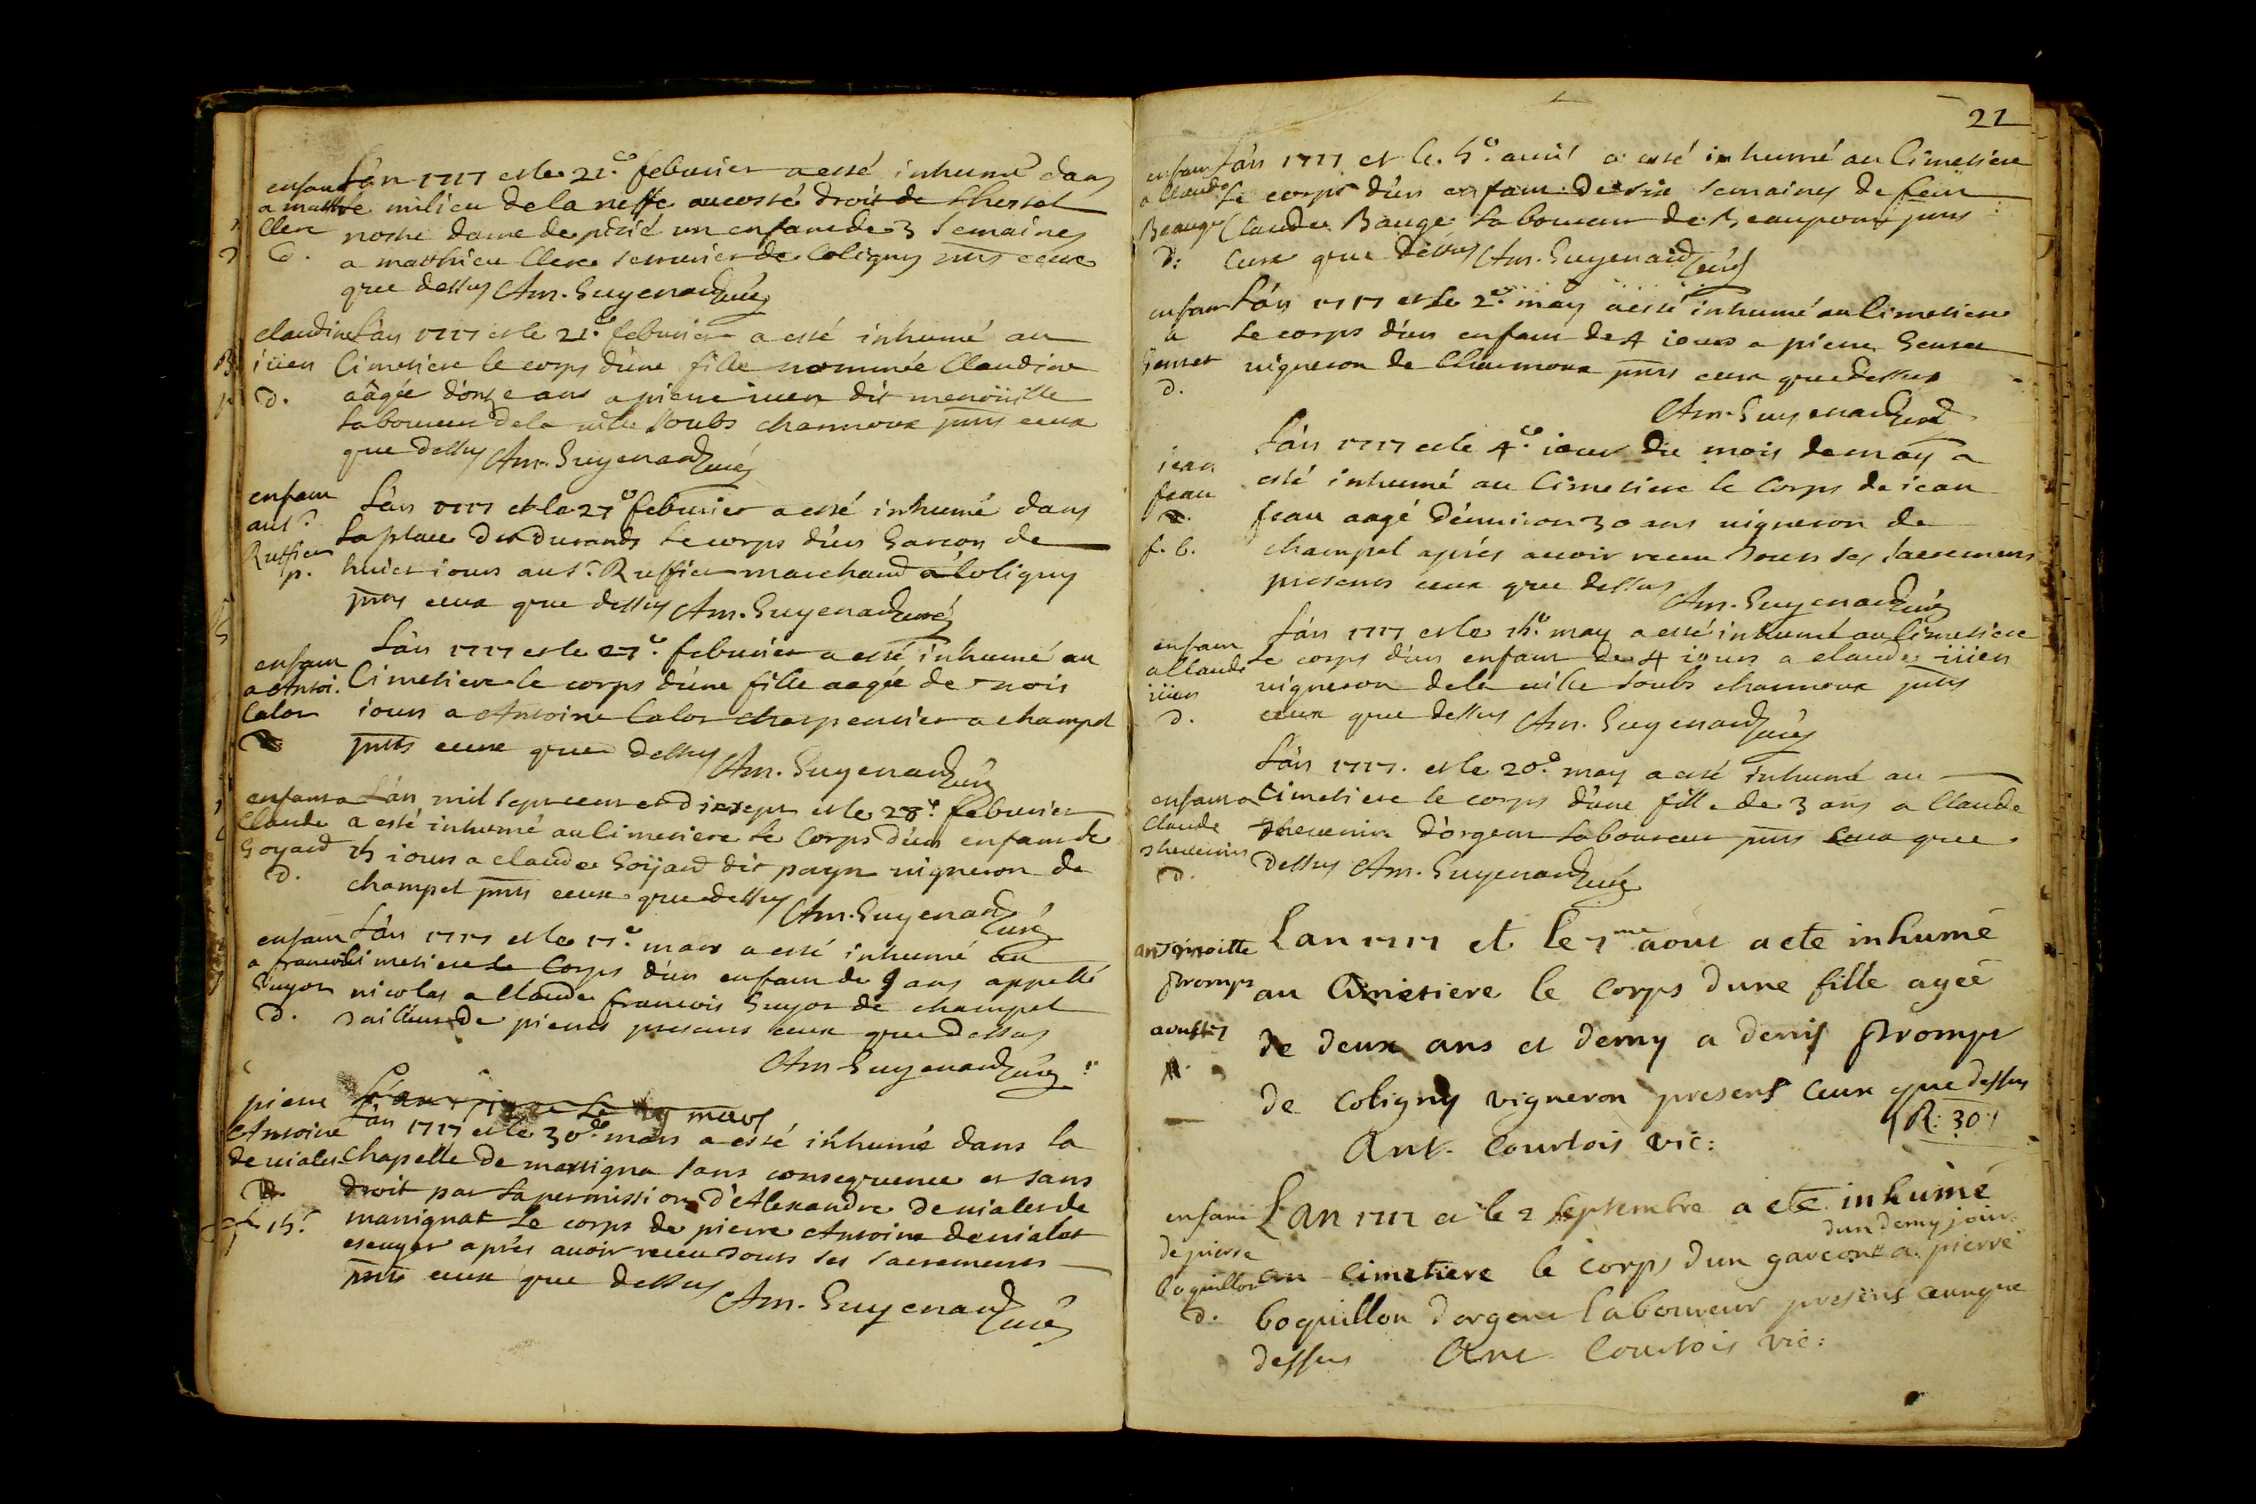 enfant L'an 1717 et le 21e. feburier a esté inhumé dans
a matth le milieu de la neffe au costé droit de
Clerc nostre dame de pitié un enfant de 3 semaines
D. a matthieu Clerc serrurier de Coligny pnts ceux
que dessus Am. Guyenard curé
claudine L'an 1717 et le 21e. feburier a esté inhumé au
iüen Cimetiere le corps d'une fille nommée Claudine
D. aâgée d'onze ans a pierre iuen dit
laboureur de la ville soubs charmoux pnts ceux
que dessus Am. Guyenard curé
enfant L'an 1717 et le 27e feburier a esté inhumé dans
au sr. la place des durands le corps d'un Garcon de
Ruffier
p. huict iours au sr. Ruffier marchand a Coligny
pnts ceux que dessus Am. Guyenard curé
L'an 1717 et le 27e. feburier a esté inhumé au
enfant
a Antoi. Cimetiere le corps d'une fille aagée de trois
Calor iours a Antoine Calor charpentier a champel
pnts ceux que dessus Am. Guyenard curé
enfant a L'an mil sept cent et dix sept et le 28e. feburier
Claude a esté inhumé au Cimetiere le Corps d'un enfant de
Goyard 15 iours a claude Goÿard dit payn vigneron de
D. champel pnts ceux que dessus Am. Guyenard curé
enfant L'an 1717 et le 17e. mars a esté inhumé au
a francois Cimetiere le Corps d'un enfant de 9 ans appellé
Guyor nicolas a Claude francois Guyor de champel
D. tailleur de pierres presents ceux que dessus
Am Guyenard curé
pierre L'an 1717 et le mars
Antoine L'an 1717 et le 30e. mars a esté inhumé dans la
de vialet Chapelle de marsigna sans consequence et sans
droit par la permission d'Alexandre de vialet de
15s marsignat le corps de pierre Antoine de vialet
escuyer après auoir receu tous ses sacrements
pnts ceux que dessus Am. Guyenard curé
21
enfant L'an 1717 et le. 5e. auril a esté inhumé au Cimetiere
a Claude le corps d'un enfant de six semaines de feü
Beauge Claude Bauge laboureur de Beaupont pnts
D: Ceux que dessus Am. Guyenard curé
enfant L'an 1717 et le 2e. may a esté inhumé au Cimetiere
a le corps d'un enfant de 4 iours a pierre Genset
Genset vigneron de Charmoux pnts ceux que dessus
D.
Am. Guyenard curé
L'an 1717 et le 4e. iour du mois de may a
iean esté inhumé au Cimetiere le Corps de iean
feau feau aagé d'enuiron 30 ans vigneron de
f. 6. champel après auoir receu tous ses sacremens
presents ceux que dessus Am. Guyenard curé
L'an 1717 et le 15e. may a esté inhumé au Cimetiere
enfant le corps d'un enfant de 4 iours a claude iüen
a Claude vigneron de la ville soubs charmoux pnts
iüen
D. ceux que dessus Am. Guyenard curé
L'an 1717. et le 20e. may a esté inhumé au
enfant a Cimetiere le corps d'une fille de 3 ans a Claude
Claude theuenin d'orgent laboureur pnts ceux que
theuenin
D. dessus Am. Guyenard curé
antoinette Lan 1717 et le 7me aout a ete inhumé
promps au Cimetiere le Corps dune fille ageé
de deux ans et demy a denis promps
de coligny vigneron presens ceux que dessus
Ant. Courtois vic: R: 30
enfant Lan 1717 et le 2 septembre a ete inhumé
dun demy jour
de pierre au cimetiere le corps dun garcon a pierre
boquillon
D. boquillon dorgent laboureur presens ceux que
dessus Ant Courtois vic: